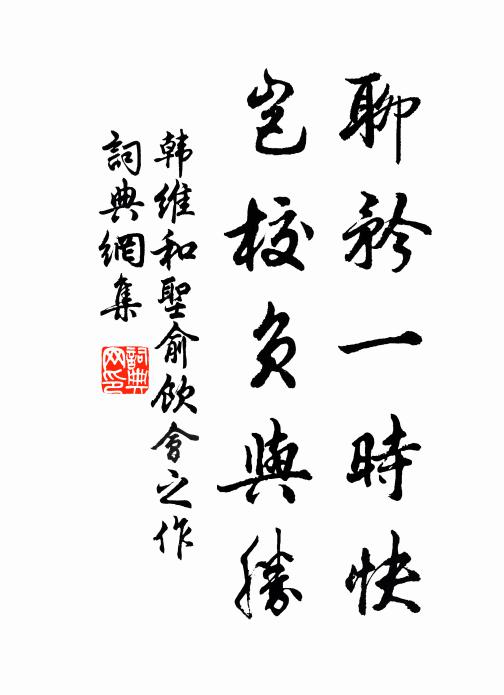 聊矜一時快
豈校負與勝
韩維和聖俞飲會之作
詞典網集
詞典
网印